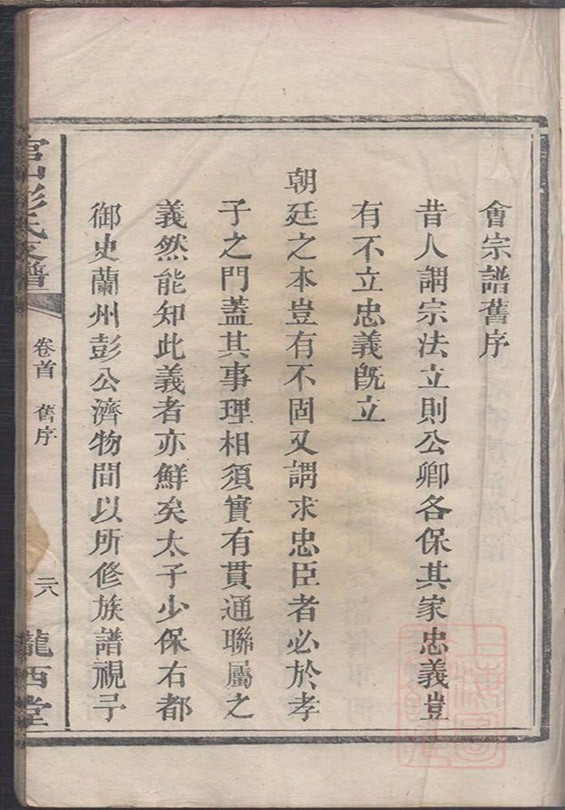 會宗譜舊序
昔人謂宗法立則公卿各保其家忠義豈
有不立忠義旣立
朝廷之本豈有不固又謂求忠臣者必於孝
子之門蓋其事理相須實有貫通聯屬之
義然能知此義者亦鮮矣太子少保右都
御史蘭州彭公濟物間以所修族譜視予
官山彭氏支譜
卷首 舊序
六
隴西堂